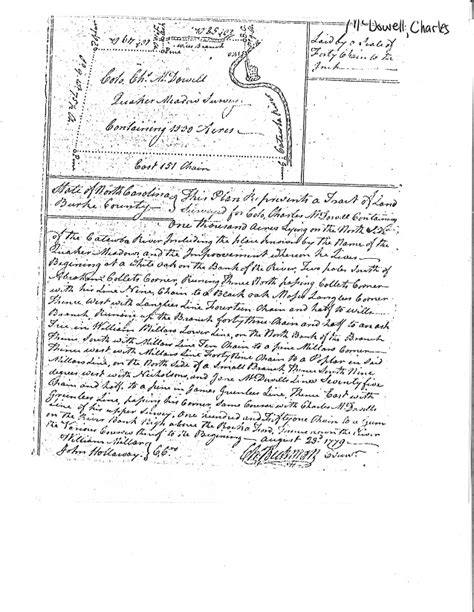 McDowell, Charles
Laid by a Scale of
Forty Chain to the
Inch
Colo. Chs. McDowell
Quaker Meadow Survey
Containing 1030 Acres
East 151 Chain
Catawba River
State of North Carolina
Burke County
This Plan Represents a Tract of Land
Surveyed for Colo. Charles McDowell Containing
one thousand Acres Lying on the North Side
of the Catawba River Including the place known by the Name of the
Quaker Meadow and the Improvement whereon he Lives
Begining at a White Oak on the Bank of the River Two poles South of
Abraham Collets Corner, Running Thence North passing Collets Corner
with his Line Nine Chain to a Black oak Moses Langleys Corner
Thence West with Langleys Line Fourteen Chain and half to Wills
Branch Running up the Branch forty Nine Chain and half to an ash
Tree in William Millars Lower Line, on the North Bank of the Branch
Thence South with Millars Line Ten Chain to a pine Millars Corner
Thence West with Millars Line Forty Nine Chain to a Poplar in Said
Millars Line, on the North Side of a Small Branch Thence South Nine
degees West with Nicholsons and Jane McDowells Lines Seventy five
Chain and half, to a pine in James Greenlee Line, Thence East with
Greenlees Line, passing his Corner Same Course with Charles McDowells
Line of his upper Survey, One hundred and Fifty One Chain to a Gum
on the River Bank high above the Ford, Thence up the River
the Various Courses thereof to the Begining August 23d. 1779
William Millar
John Hollaway